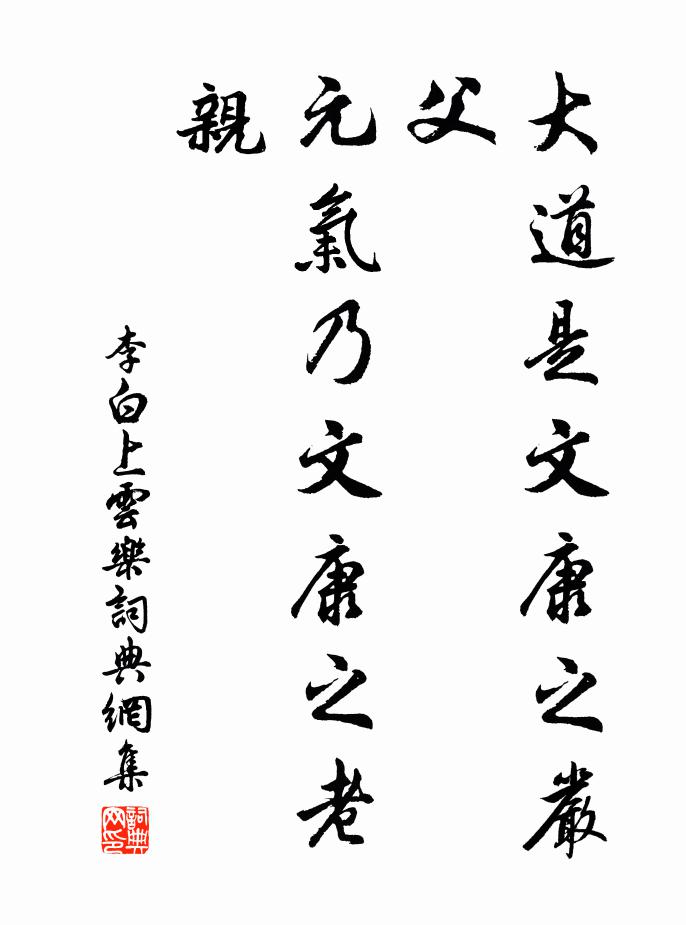 大道是文康之嚴
父
元氣乃文康之老
親
李白上雲樂詞典網集
詞典
网印